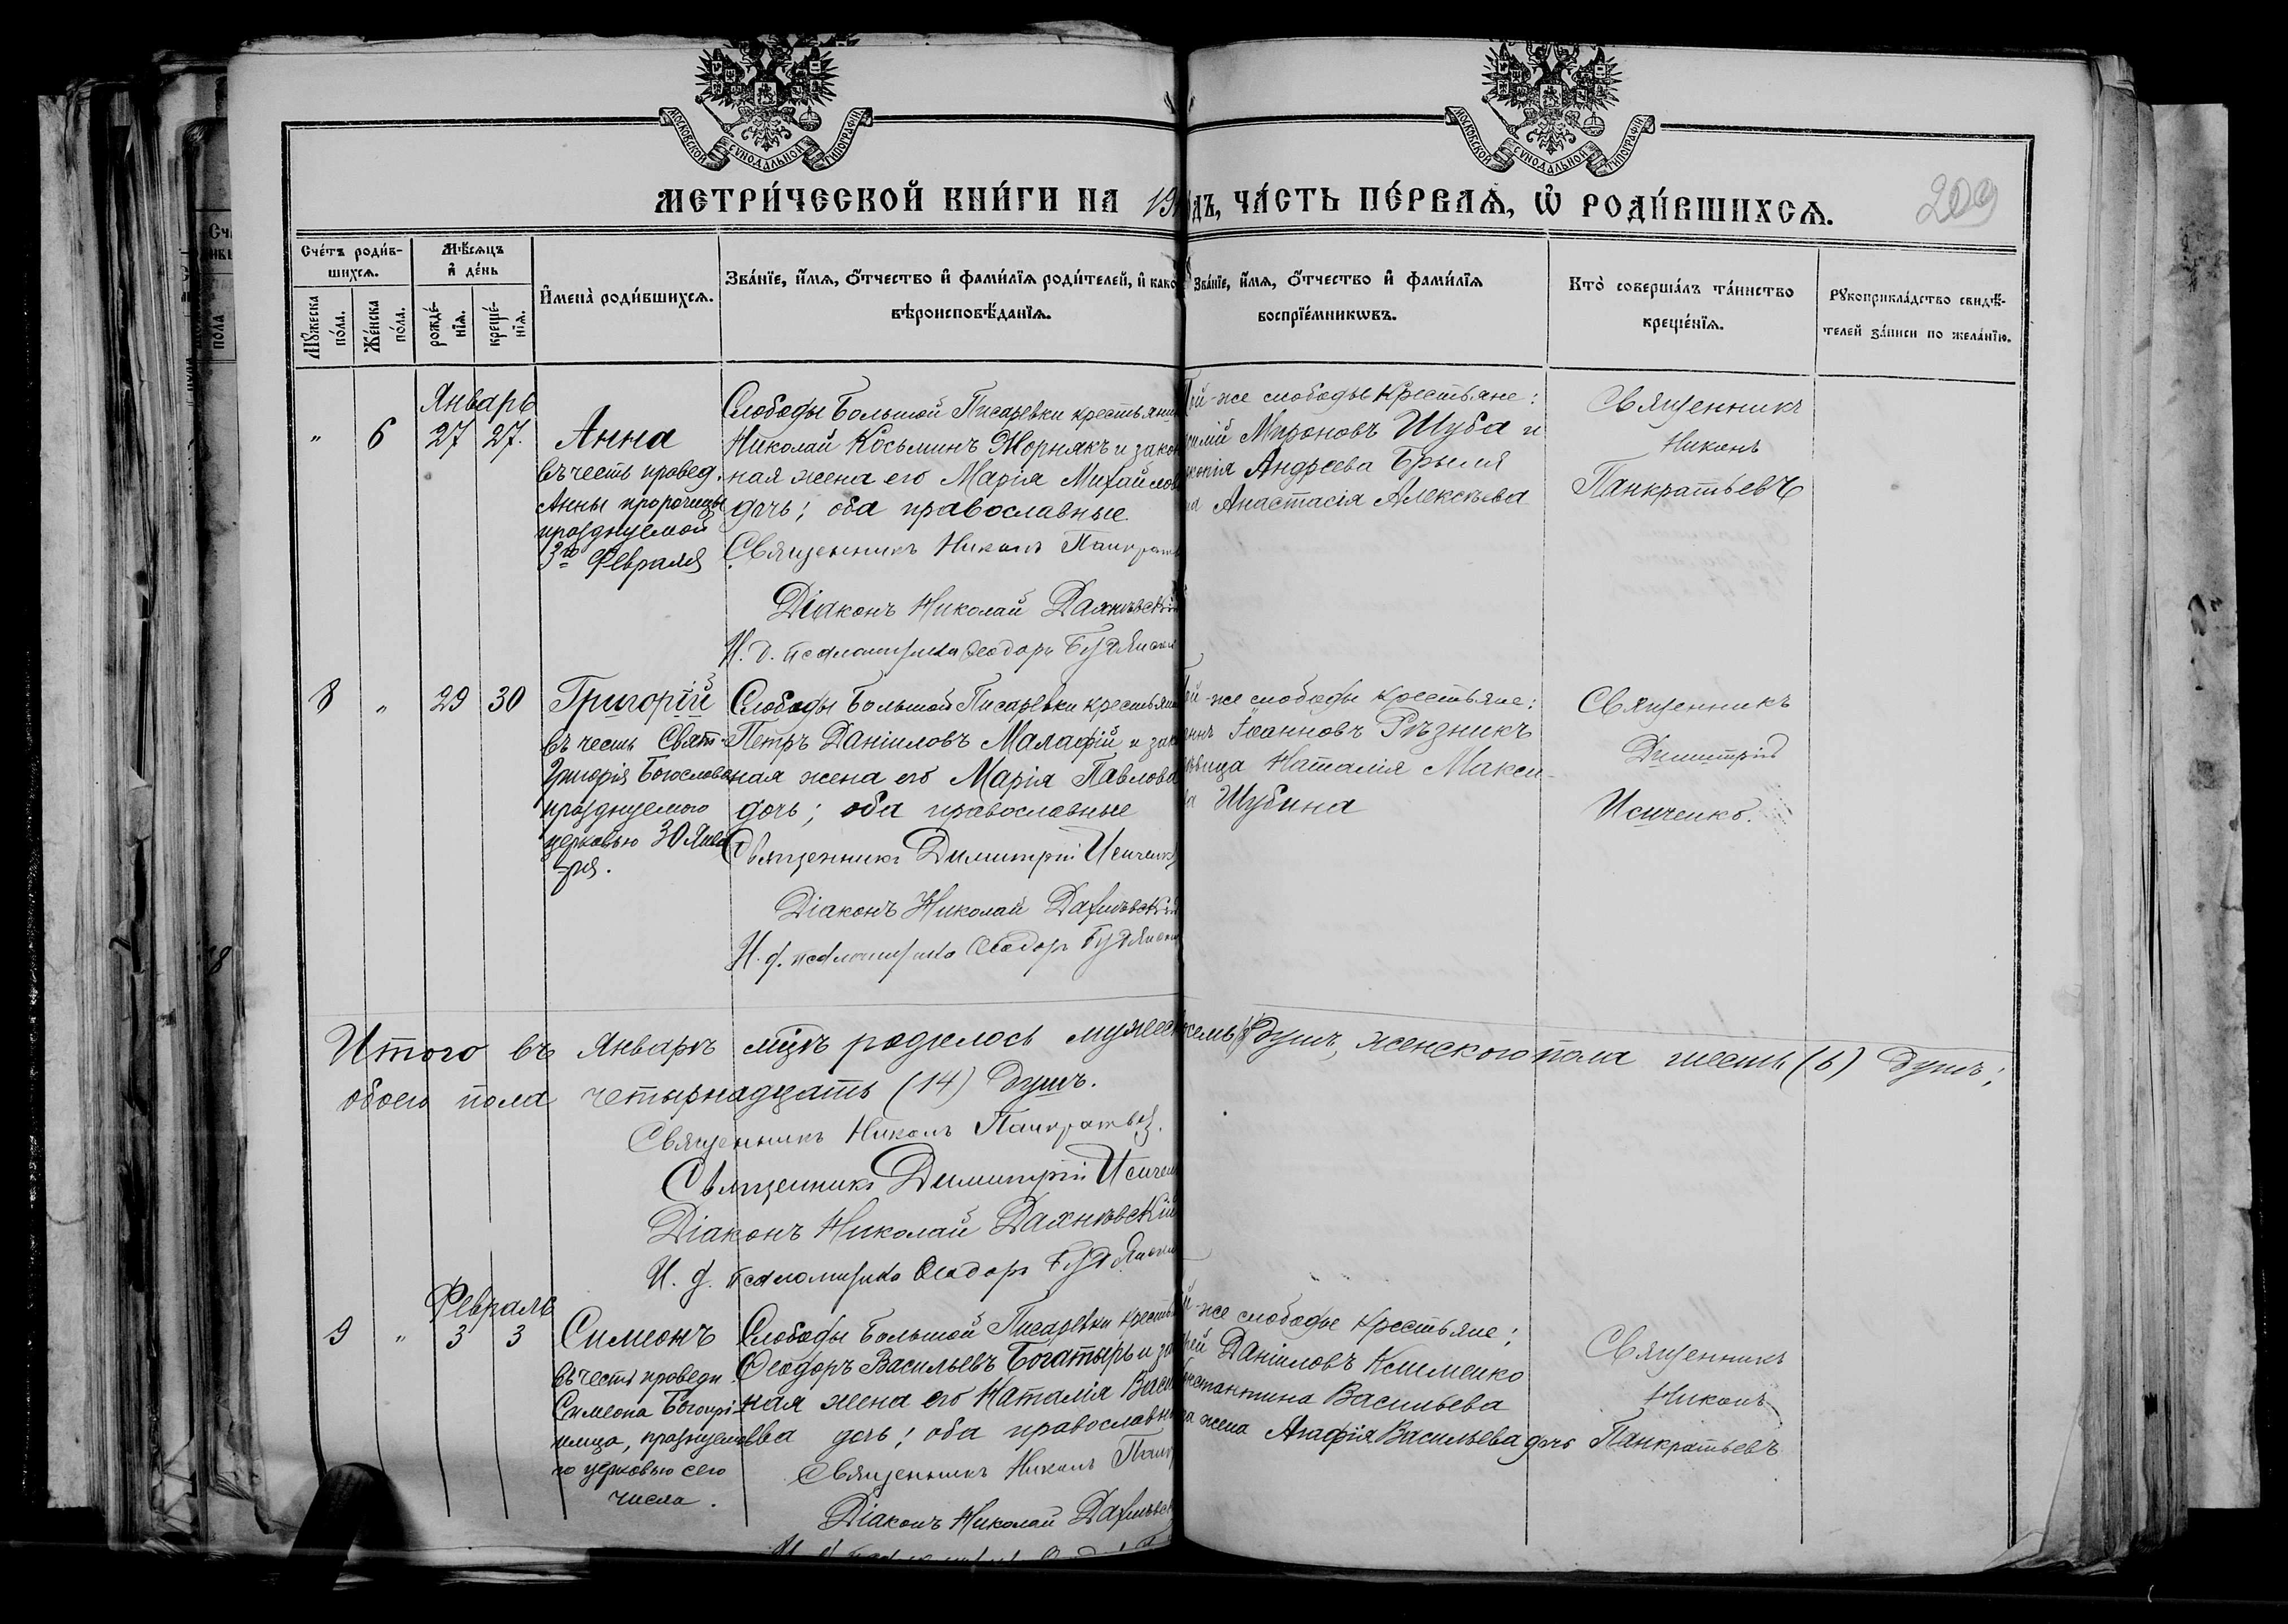 МОСКОВСКОЙ СѴНОДАЛЬНОЙ ТИПОГРАФІИ
МОСКОВСКОЙ СѴНОДАЛЬНОЙ ТИПОГРАФІИ
МЕТРИ́ЧЕСКОЙ КНИ́ГИ НА 19 дъ, ЧА́СТЬ ПЕ́РВАѦ, Ѡ РОДИ́ВШИХСѦ.
209
Сче́тъ роди́в-
шихсѧ.
Мѣ́сѧцъ
и҆ де́нь
Мꙋ́жеска по́ла.
Же́нска по́ла.
рожде́-нїѧ.
креще́-нїѧ.
И҆мена̀ роди́вшихсѧ.
Зва́нїе, и҆́мѧ, ѻ҆́тчество и҆ фами́лїѧ роди́телей, и҆ како
вѣроисповѣ́данїѧ.
Зва́нїе, и҆́мѧ, ѻ҆́тчество и҆ фами́лїѧ
воспрїе́мникѡвъ.
Кто̀ соверша́лъ та́инство
креще́нїѧ.
Рꙋкоприкла́дство свидѣ́-
телей за́писи по жела́нїю.
Январь
" 6 27 27. Анна
въ честь провед.
Анны пророчицы
празднуемой
3го Февраля
Слободы Большой Писаревки крестьянин
Николай Косьминъ Жорнякъ и закон
ная жена его Марія Михайлов
дочь; оба православные
Священникъ Никонъ Панкрать
Діаконъ Николай
И. д. псаломщика Ѳеодоръ
Той-же слободы крестьяне:
силій Мироновъ Шуба и
копія Андреева Брыля
на Анастасія Алексѣева
Священникъ
Никонъ
Панкратьевъ
8 " 29 30 Григорій
въ честь Свят.
Григорія Богослова
празднуемого
церковью 30 Янва
-ря.
Слободы Большой Писаревки крестьянин
Петръ Даніиловъ Малафій и зак
ная жена его Марія Павлова
дочь; оба православные
Священникъ Димитрій Исиченко
Діаконъ Николай
И. д. псаломщика Ѳеодоръ
Той-же слободы крестьяне:
Іоанновъ Рѣзникъ
дѣвица Наталія Макси-
ва Шубина
Священникъ
Димитрій
Исиченко.
Итого въ Январѣ м-цѣ родилось мужеск семь душъ, женского пола шесть (6) душъ;
обоего пола четырнадцать (14) душъ.
Священникъ Никонъ Панкратьевъ.
Священникъ Димитрій Исичен
Діаконъ Николай
И. д. псаломщика Ѳеодоръ
Февраль
9 " 3 3 Симеонъ
въ честь праведн
Симеона Богопрі-
имца, празднуемо
го церковью сего
числа.
Слободы Большой Писаревки кресть
Ѳеодоръ Васильевъ Богатырь и за
ная жена его Наталія Васи
ва дочь; оба православны
Священникъ Никонъ Панкр
Діаконъ Николай
й-же слободы крестьяне;
рей Даніиловъ Клименко
нстантина Васильева
на жена Агафія Васильева дочь
Священникъ
Никонъ
Панкратьевъ